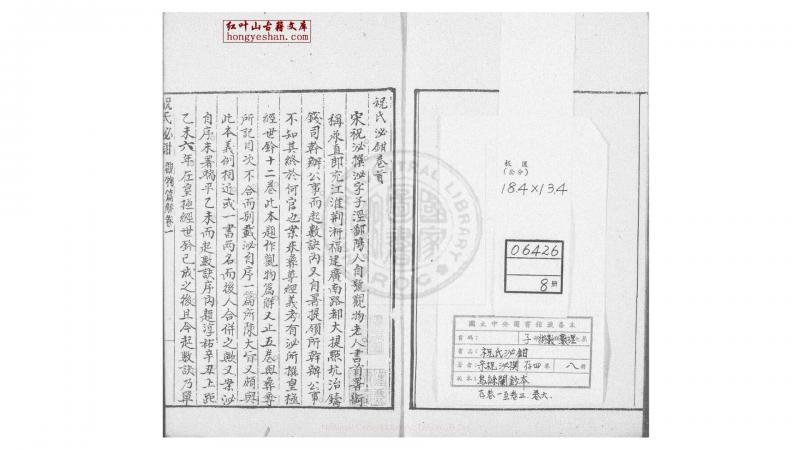 红叶山古籍文库
hongyeshan.com
祝氏泌鉗卷首
宋祝泌撰泌字子涇鄱陽人自號觀物老人書首署銜
稱承直郎充江淮荆淛福建廣南路都大提㸃坑冶鑄
錢司幹辦公事而起數訣内又自署提領所幹辦公事
不知其終於何官也案朱彝尊經義考有泌所撰皇極
經世鈐十二卷此本題作觀物篇解又止五卷與彝尊
所記目次不合而别載泌自序一篇所陳大㫖又頗與
此本義例相近或一書兩名而後人合併之歟又案泌
自序末署端平乙未而起數訣序内題淳祐辛丑上距
乙未六年在皇極經世鈐已成之後且今起數訣乃單
祝氏泌鉗
觀物篇解卷一
板匡
(公分)
18.4×13.4
06426
8 册
國立中央圖書館藏善本
書碼：
子
術數
數理
書名：祝氏泌鉗
著者：宋祝泌撰 存四卷 八册
板本：烏絲闌鈔本
存卷一至卷三．卷六．